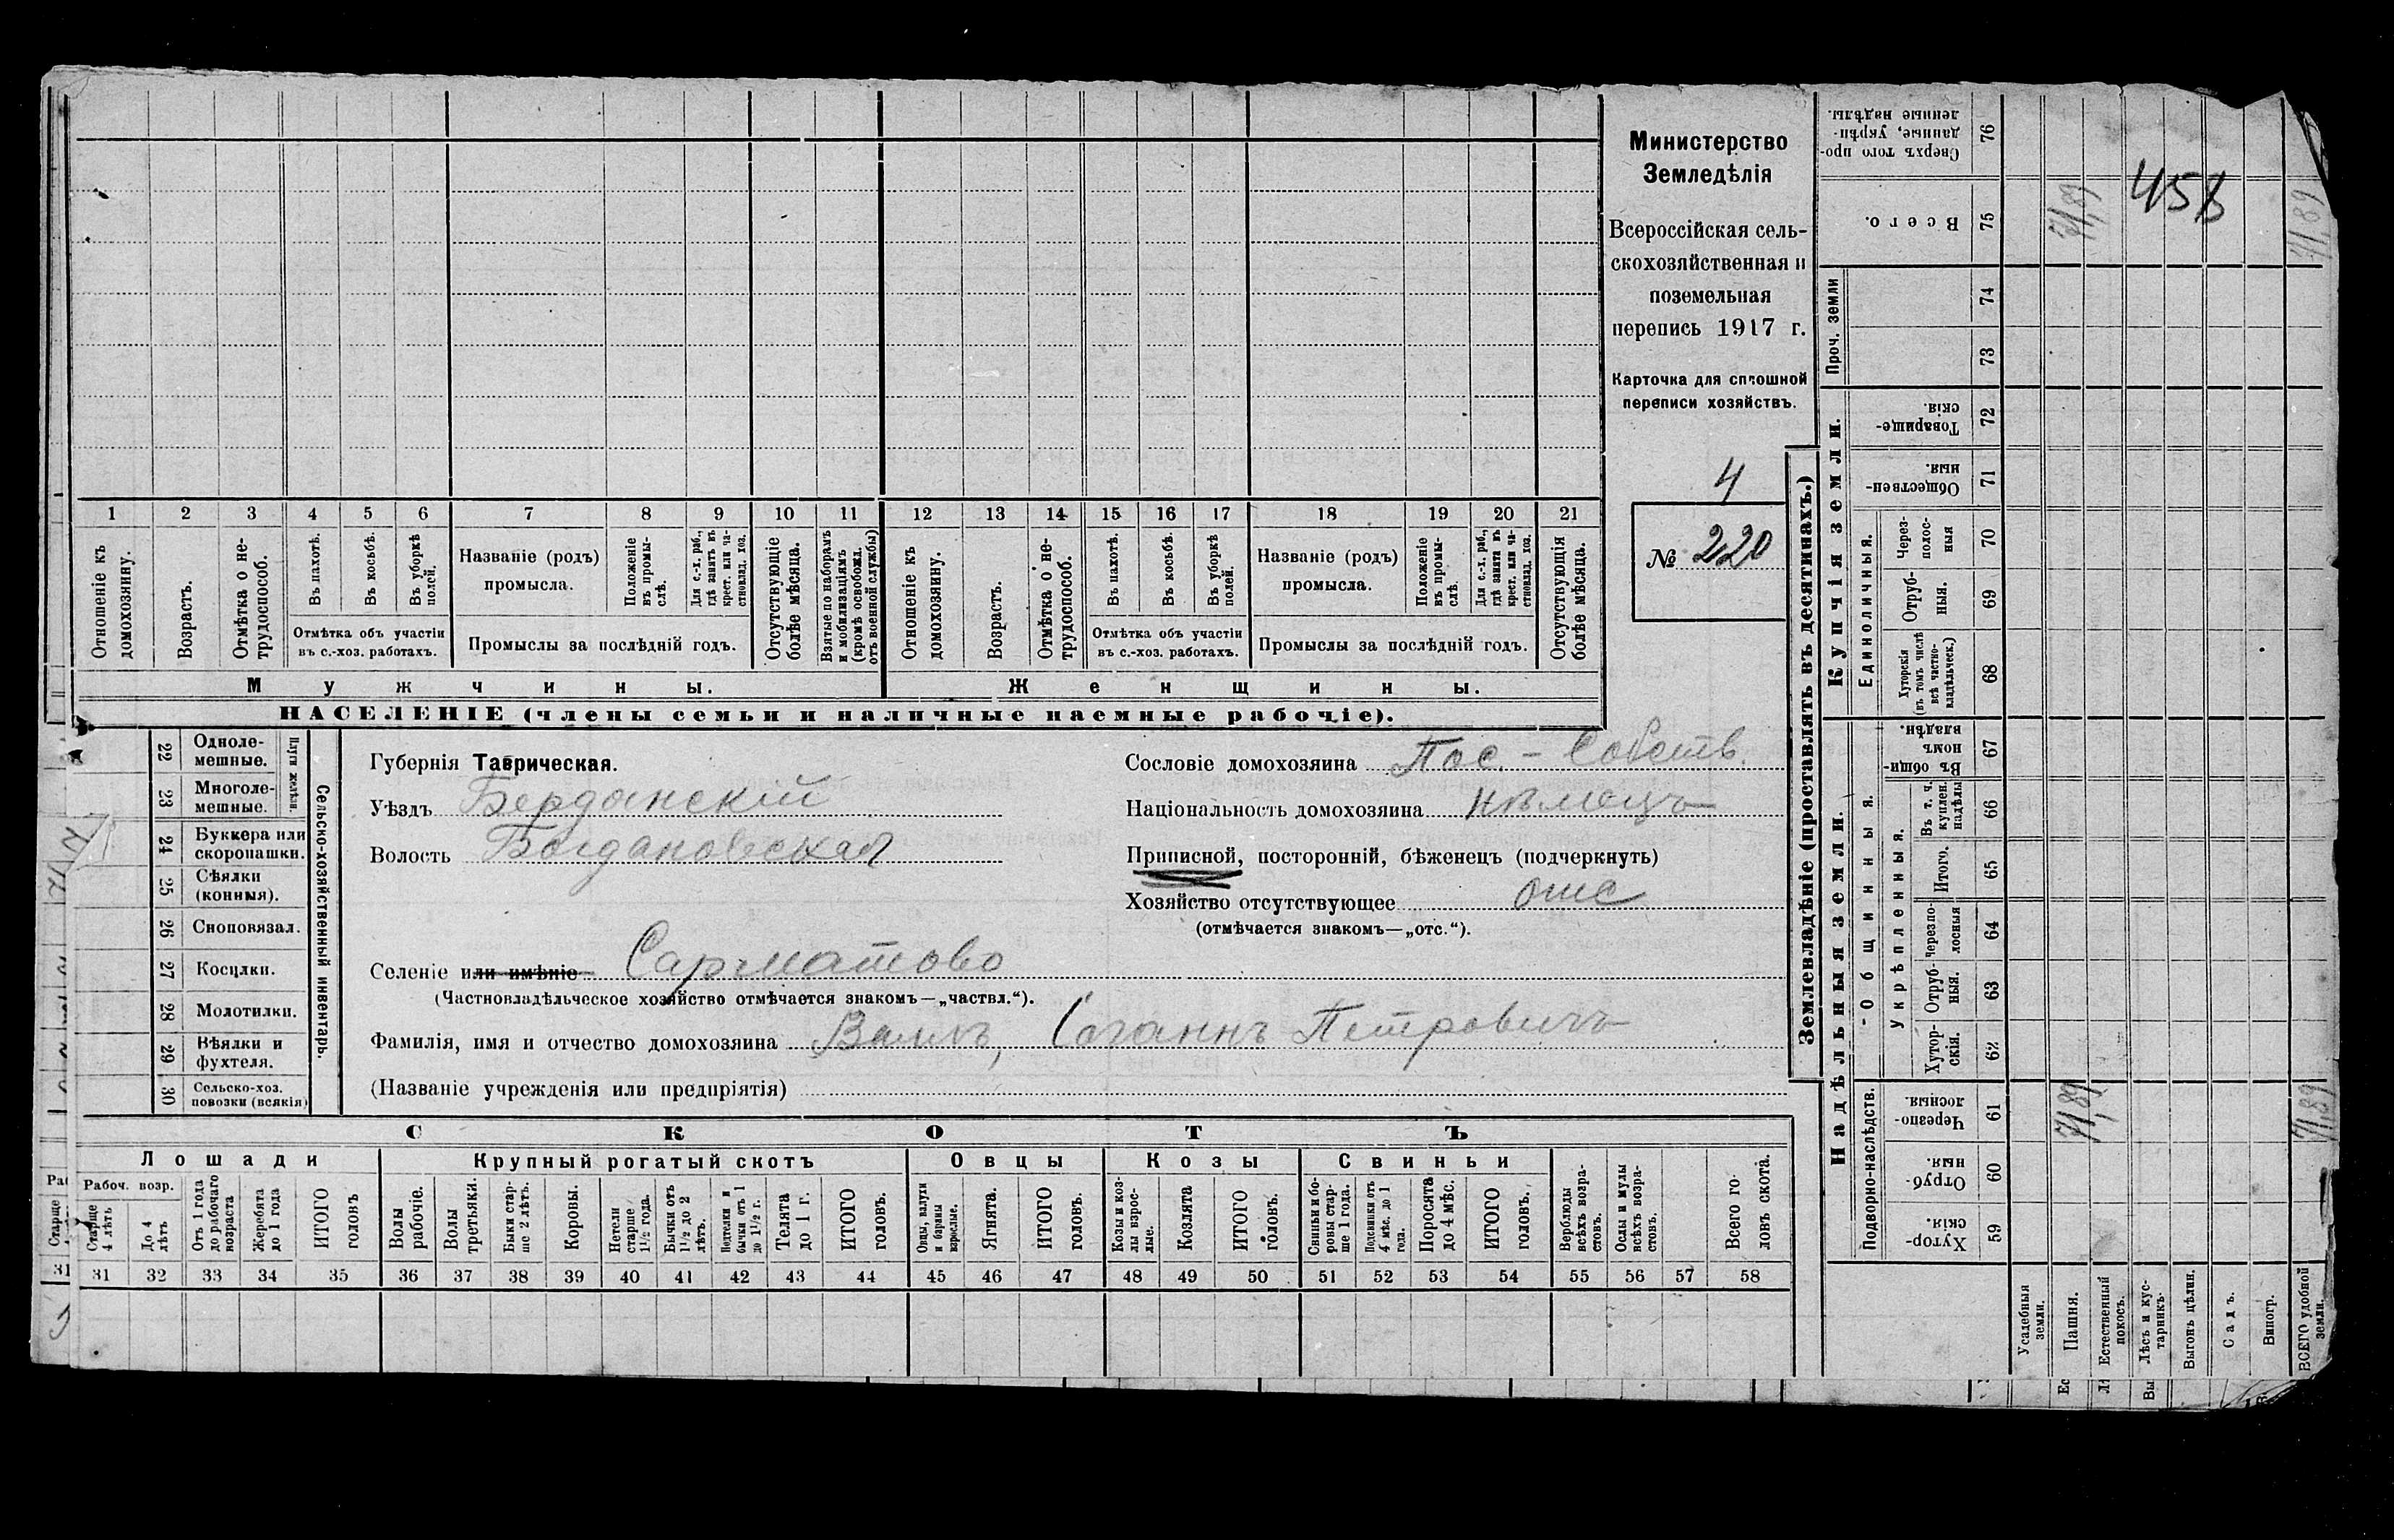 Министерство
Земледѣлія
Всероссійская сель-
скохозяйственная и
поземельная
перепись 1917 г.
Карточка для сплошной
переписи хозяйствъ.
4
№ 220
1 2 3 4 5 6 7 8 9 10 11 12 13 14 15 16 17 18 19 20 21
Отношеніе къ домохозяину.
Возрастъ.
Отмѣтка о не-трудоспособ.
Въ пахотѣ.
Въ косьбѣ.
Въ уборкѣ полей.
Отмѣтка объ участіи
въ с.-хоз. работахъ.
Названіе (родъ)
промысла.
Положеніе въ промы-слѣ.
Для с.-х. раб., гдѣ занятъ въ крест. или ча-стновлад. хоз.
Промыслы за послѣдній годъ.
Отсутствующіе болѣе мѣсяца.
Взятые по наборамъ и мобилизаціямъ (кромѣ освобожд. отъ военной службы)
Отношеніе къ домохозяину.
Возрастъ.
Отмѣтка о не-трудоспособ.
Въ пахотѣ.
Въ косьбѣ.
Въ уборкѣ полей.
Отмѣтка объ участіи
въ с.-хоз. работахъ.
Названіе (родъ)
промысла.
Положеніе въ промы-слѣ.
Для с.-х. раб., гдѣ занята въ крест. или ча-стновлад. хоз.
Промыслы за послѣдній годъ.
Отсутствующія болѣе мѣсяца.
Мужчины.
Женщины.
НАСЕЛЕНІЕ (члены семьи и наличные наемные рабочіе).
22 Одноле-мешные.
23 Многоле-мешные.
Плуги желѣзн.
24 Буккера или скоропашки.
25 Сѣялки (конныя).
26 Сноповязал.
27 Косилки.
28 Молотилки.
29 Вѣялки и фухтеля.
30 Сельско-хоз. повозки (всякія)
Сельско-хозяйственный инвентарь.
Губернія Таврическая.
Уѣздъ Бердянскій
Волость Богдановская
Селеніе или имѣніе Сарматово
(Частновладѣльческое хозяйство отмѣчается знакомъ—„частвл.“).
Фамилія, имя и отчество домохозяина Валлъ, Іоганнъ Петровичъ
(Названіе учрежденія или предпріятія)
Сословіе домохозяина Пос. - Собств.
Національность домохозяина нѣмецъ
Приписной, посторонній, бѣженецъ (подчеркнуть)
Хозяйство отсутствующее отс
(отмѣчается знакомъ—„отс.“).
СКОТЪ
Лошади
Крупный рогатый скотъ
Овцы
Козы
Свиньи
Рабоч. возр.
Старше 4 лѣтъ
До 4 лѣтъ
Отъ 1 года до рабочаго возраста
Жеребята до 1 года
ИТОГО головъ
Волы рабочіе.
Волы третьяки.
Быки стар-ше 2 лѣтъ.
Коровы.
Нетели старше 1½ года.
Бычки отъ 1½ до 2 лѣтъ.
Подтелки и бычки отъ 1 до 1½ г.
Телята до 1 г.
ИТОГО головъ.
Овцы, валухи и бараны взрослые.
Ягнята.
ИТОГО головъ.
Козы и коз-лы взрос-лые.
Козлята
ИТОГО головъ.
Свиньи и бо-ровы стар-ше 1 года.
Подсвинки отъ 4 мѣс. до 1 года.
Поросята до 4 мѣс.
ИТОГО головъ.
Верблюды всѣхъ возра-стовъ.
Ослы и мулы всѣхъ возра-стовъ.
Всего го-ловъ скота.
31 32 33 34 35 36 37 38 39 40 41 42 43 44 45 46 47 48 49 50 51 52 53 54 55 56 57 58
Землевладѣніе (проставлять въ десятинахъ.)
Купчія земли.
Надѣльныя земли.
Проч. земли
Единоличныя.
Общинныя.
Укрѣпленныя.
Подворно-наслѣдств.
Сверхъ того про-данные, укрѣп-ленные надѣлы. 76
Всего. 75
74
73
Товарище-скія. 72
Обществен-ныя. 71
Через-полос-ныя 70
Отруб-ныя. 69
Хуторскія (въ томъ числѣ всѣ частно-владѣльческ.) 68
Въ общин-номъ владѣн. 67
Въ т. ч. куплен. надѣлы 66
Итого. 65
Черезпо-лосныя 64
Отруб-ныя. 63
Хутор-скія. 62
Черезпо-лосныя. 61
Отруб-ныя. 60
Хутор-скія. 59
Усадебныя земли.
Пашня.
Естественный покосъ.
Лѣсъ и кус-тарникъ.
Выгонъ цѣлин.
Садъ.
Виногр.
ВСЕГО удобной земли.
458
71,89
71,89
71,89
71,89